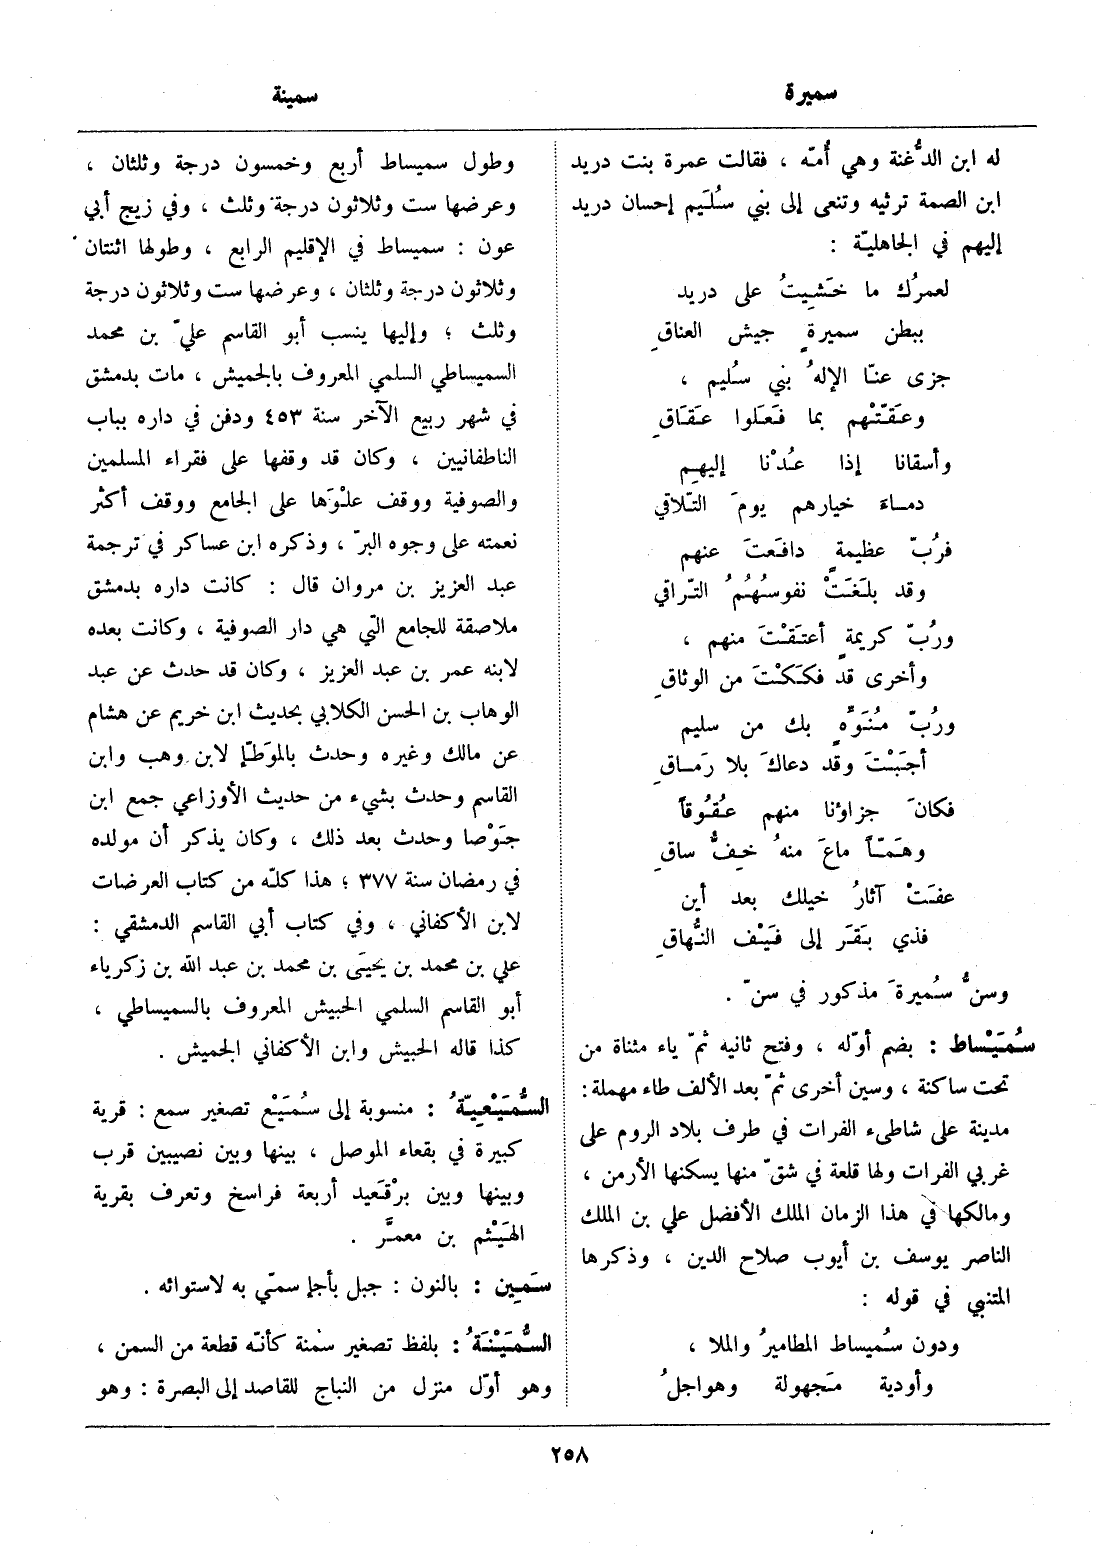 سميرة
سمينة
له ابن الدُّغنة وهي أُمّه ، فقالت عمرة بنت دريد
ابن الصمة ترثيه وتنعى إلى بني سُلَيم إحسان دريد
إليهم في الجاهليّة :
لعمرُك ما خَشِيتُ على دريد
ببطن سميرةٍ جيش العناقِ
جزى عنّا الإلهُ بني سُليم ،
وعَقّتْهم بما فَعَلوا عَقَاقِ
وأسقانا إذا عُدْنا إليهم
دماءَ خيارهم يومَ التّلاقي
فرُبّ عظيمةٍ دافَعتَ عنهم
وقد بلَغَتْ نفوسُهُمُ التّراقي
ورُبّ كريمةٍ أعتَقْتَ منهم ،
وأخرى قد فكَكْتَ من الوثاقِ
ورُبّ مُنَوِّهٍ بك من سليم
أجَبْتَ وقد دعاكَ بلا رَماقِ
فكانَ جزاؤنا منهم عقُوقاً
وهَمّاً ماعَ منهُ خفُّ ساقِ
عفَتْ آثارُ خيلك بعد أين
فذي بَقَر إلى فَيْف النُّهاقِ
وسنُّ سُميرةَ مذكور في سنّ .
سُمَيْساط : بضم أوّله ، وفتح ثانيه ثمّ ياء مثناة من
تحت ساكنة ، وسين أخرى ثمّ بعد الألف طاء مهملة :
مدينة على شاطىء الفرات في طرف بلاد الروم على
غربي الفرات ولها قلعة في شقّ منها يسكنها الأرمن ،
ومالكها في هذا الزمان الملك الأفضل علي بن الملك
الناصر يوسف بن أيوب صلاح الدين ، وذكرها
المتنبي في قوله :
ودون سُميساط المطاميرُ والملا ،
وأودية مَجهولة وهواجلُ
وطول سميساط أربع وخمسون درجة وثلثان ،
وعرضها ست وثلاثون درجة وثلث ، وفي زيج أبي
عون : سميساط في الإقليم الرابع ، وطولها اثنتان
وثلاثون درجة وثلثان ، وعرضها ست وثلاثون درجة
وثلث ؛ وإليها ينسب أبو القاسم عليّ بن محمد
السميساطي السلمي المعروف بالجميش ، مات بدمشق
في شهر ربيع الآخر سنة ٤٥٣ ودفن في داره بباب
الناطفانيين ، وكان قد وقفها على فقراء المسلمين
والصوفية ووقف علْوَها على الجامع ووقف أكثر
نعمته على وجوه البرّ ، وذكره ابن عساكر في ترجمة
عبد العزيز بن مروان قال : كانت داره بدمشق
ملاصقة للجامع التي هي دار الصوفية ، وكانت بعده
لابنه عمر بن عبد العزيز ، وكان قد حدث عن عبد
الوهاب بن الحسن الكلابي بحديث ابن خريم عن هشام
عن مالك وغيره وحدث بالموَطّإ لابن وهب وابن
القاسم وحدث بشيء من حديث الأوزاعي جمع ابن
جَوْصا وحدث بعد ذلك ، وكان يذكر أن مولده
في رمضان سنة ٣٧٧ ؛ هذا كلّه من كتاب العرضات
لابن الأكفاني ، وفي كتاب أبي القاسم الدمشقي :
علي بن محمد بن يحيَى بن محمد بن عبد الله بن زكرياء
أبو القاسم السلمي الحبيش المعروف بالسميساطي ،
كذا قاله الحبيش وابن الأكفاني الجميش .
السُّمَيْعِيّةُ : منسوبة إلى سُمَيْع تصغير سمع : قرية
كبيرة في بقعاء الموصل ، بينها وبين نصيبين قرب
وبينها وبين برْقَعيد أربعة فراسخ وتعرف بقرية
الهَيْثم بن معمَّر .
سَمِين : بالنون : جبل بأجإ سمّي به لاستوائه .
السُّمَيْنَةُ : بلفظ تصغير سمْنة كأنّه قطعة من السمن ،
وهو أوّل منزل من النباج للقاصد إلى البصرة : وهو
٢٥٨